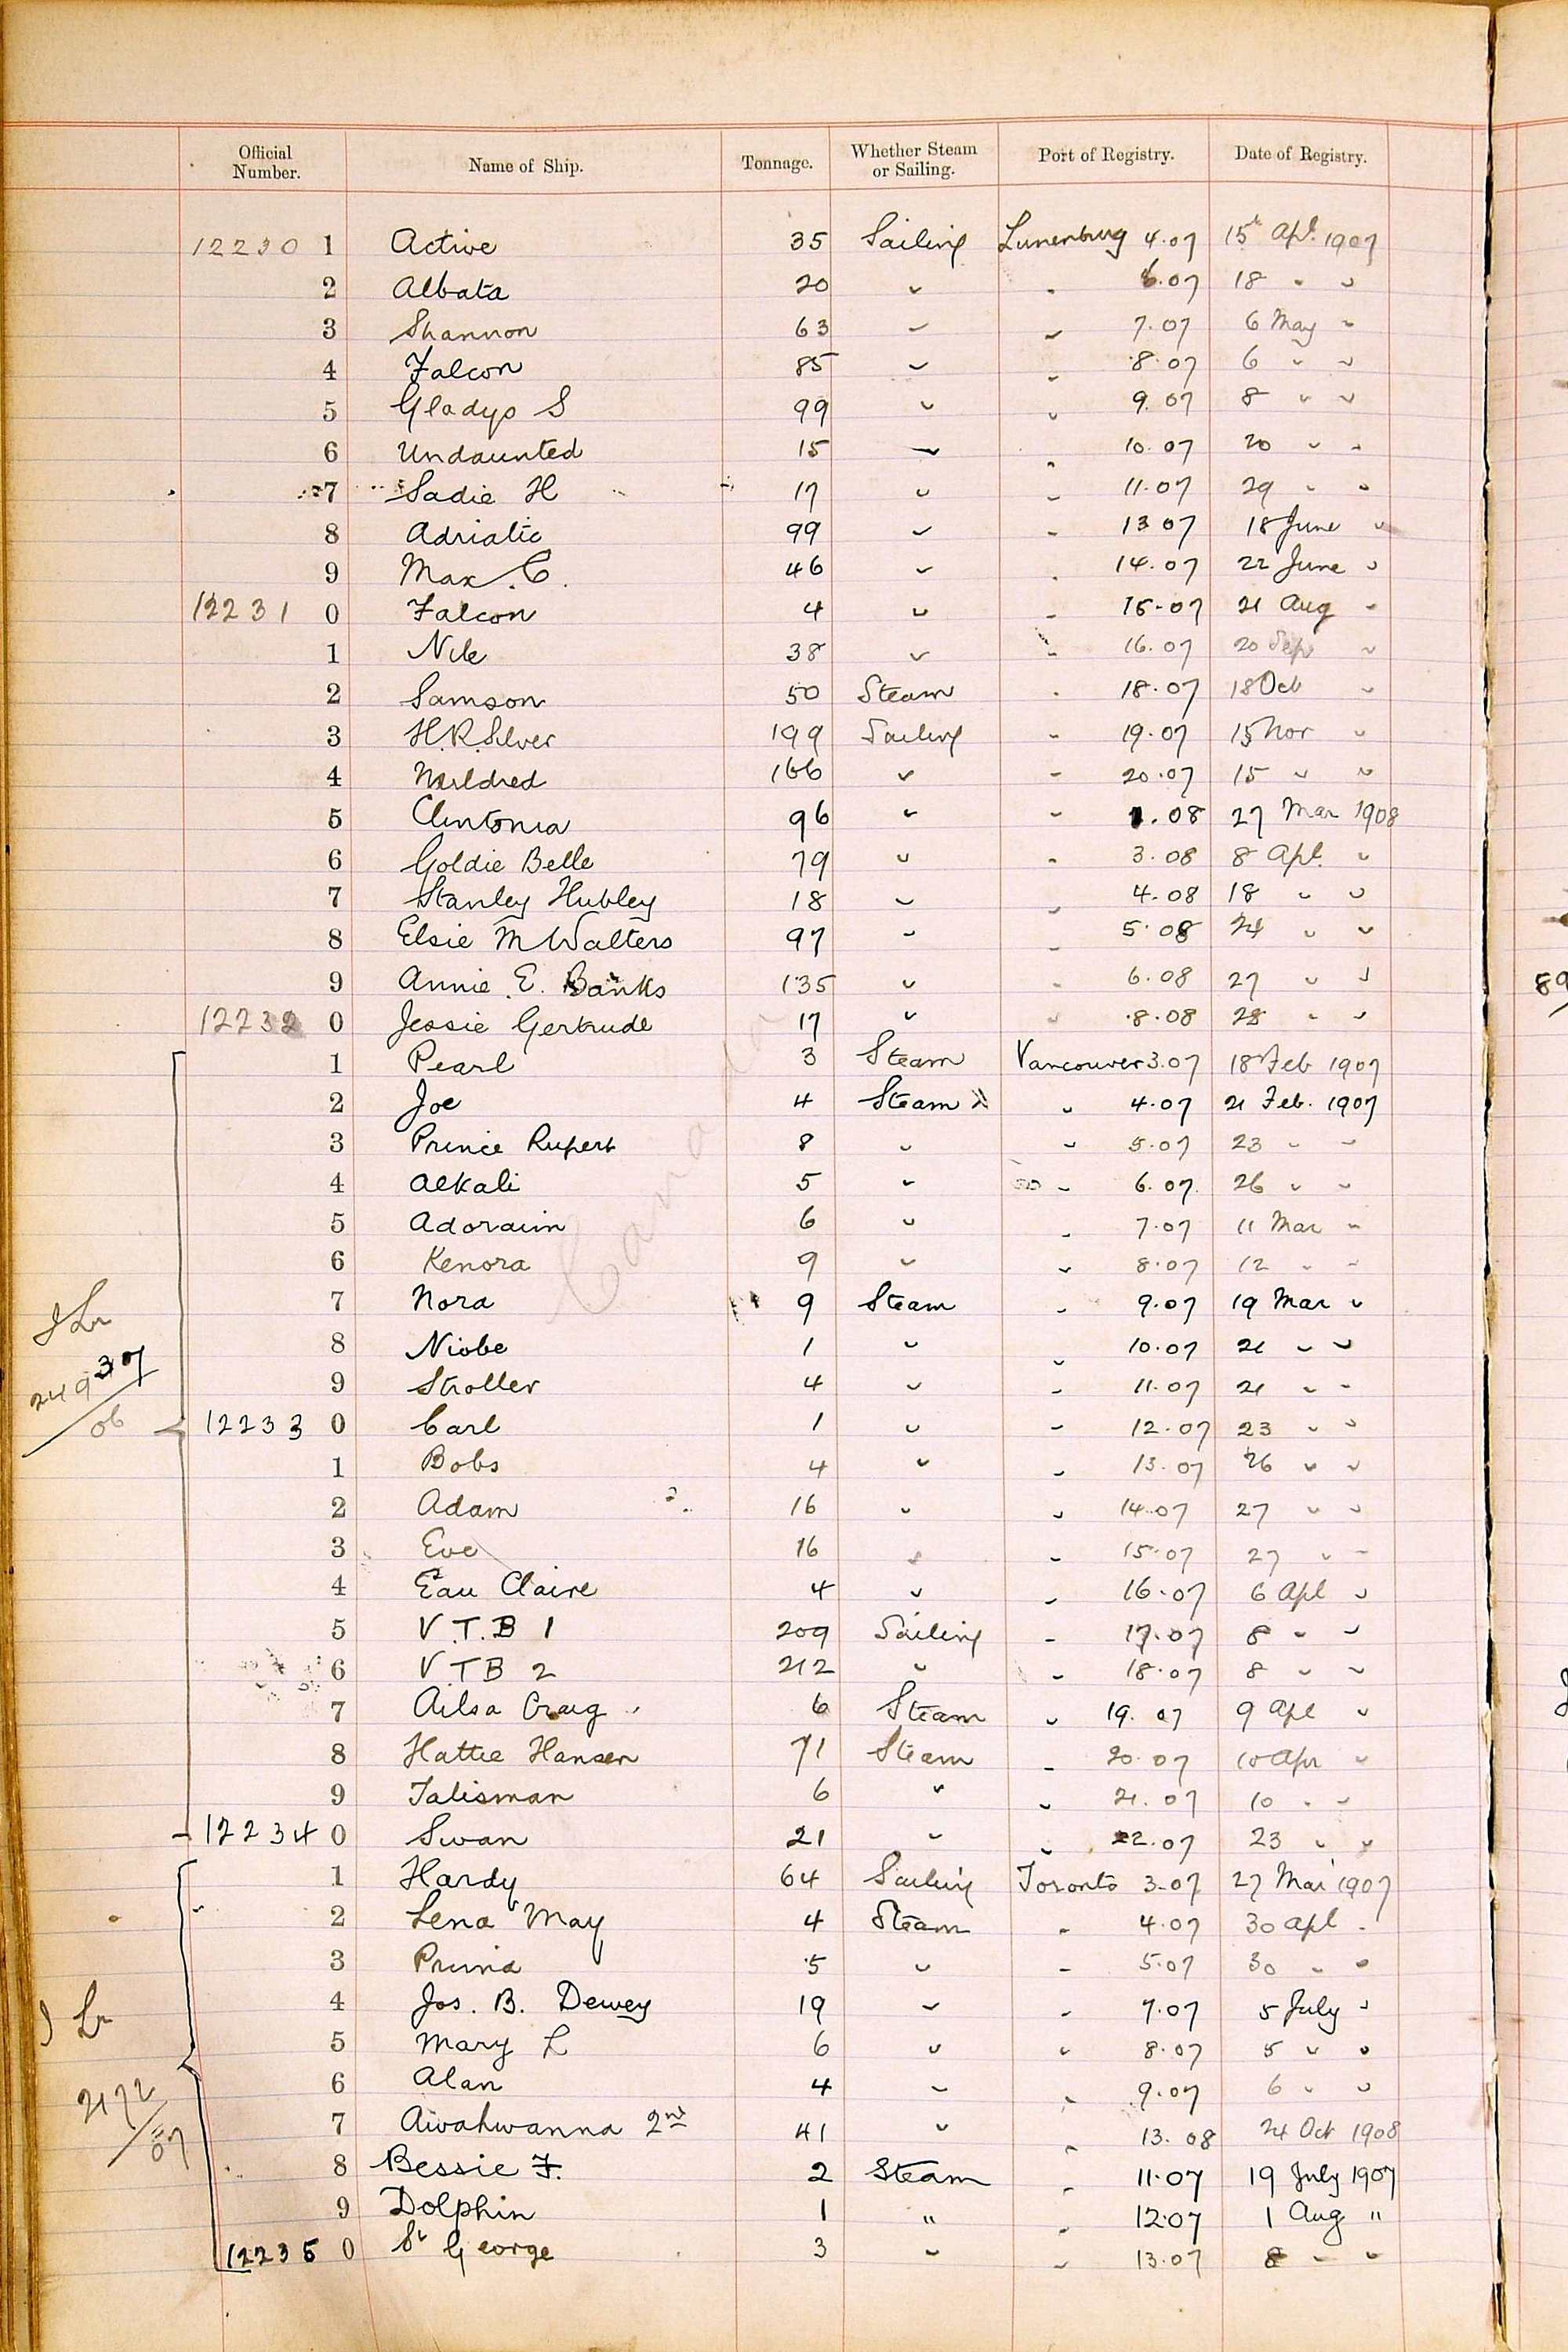 Official Number. Name of Ship. Tonnage. Whether Steam or Sailing. Port of Registry. Date of Registry.
12230 1 Active 35 Sailing Lunenburg 4.07 15th Apl. 1907
2 Albata 20 " " 6.07 18 " "
3 Shannon 63 " " 7.07 6 May "
4 Falcon 85 " " 8.07 6 " "
5 Gladys S 99 " " 9.07 8 " "
6 Undaunted 15 " " 10.07 20 " "
7 Sadie H 17 " " 11.07 29 " "
8 Adriatic 99 " " 13 07 18 June "
9 Max C. 46 " " 14.07 22 June "
12231 0 Falcon 4 " " 15-07 21 Aug "
1 Nile 38 " " 16.07 20 Sep "
2 Samson 50 Steam " 18.07 18 Oct "
3 H.R. Silver 199 Sailing " 19.07 15 Nov "
4 Mildred 166 " " 20.07 15 " "
5 Clintonia 96 " " 1.08 27 Mar 1908
6 Goldie Belle 79 " " 3.08 8 Apl. "
7 Stanley Hubley 18 " " 4.08 18 " "
8 Elsie M Walters 97 " " 5.08 24 " "
9 Annie E. Banks 135 " " 6.08 27 " "
12232 0 Jessie Gertrude 17 " " 8.08 28 " "
1 Pearl 3 Steam Vancouver 3.07 18 Feb 1907
2 Joe 4 Steam " 4.07 21 Feb. 1907
3 Prince Rupert 8 " " 5.07 23 " "
4 Alkali 5 " " 6.07 26 " "
5 Adoraim 6 " " 7.07 11 Mar "
6 Kenora 9 " " 8.07 12 " "
7 Nora 9 Steam " 9.07 19 Mar "
8 Niobe 1 " " 10.07 21 " "
9 Stroller 4 " " 11.07 21 " "
24937/06
12233 0 Carl 1 " " 12.07 23 " "
1 Bobs 4 " " 13.07 26 " "
2 Adam 16 " " 14.07 27 " "
3 Eve 16 " " 15.07 27 " "
4 Eau Claire 4 " " 16.07 6 Apl "
5 V.T.B 1 209 Sailing " 17.07 8 " "
6 V T B 2 212 " " 18.07 8 " "
7 Ailsa Craig 6 Steam " 19.07 9 Apl "
8 Hattie Hansen 71 Steam " 20.07 10 Apr "
9 Talisman 6 " " 21.07 10 " "
12234 0 Swan 21 " " 22.07 23 " "
1 Hardy 64 Sailing Toronto 3-07 27 Mar 1907
2 Lena May 4 Steam " 4.07 30 Apl "
3 Prima 5 " " 5.07 30 " "
4 Jos. B. Dewey 19 " " 7.07 5 July "
5 Mary L 6 " " 8.07 5 " "
6 Alan 4 " " 9.07 6 " "
2172/07
7 Aivahwanna 2nd 41 " " 13.08 24 Oct 1908
8 Bessie F. 2 Steam " 11.07 19 July 1907
9 Dolphin 1 " " 12.07 1 Aug "
12235 0 St George 3 " " 13.07 8 " "
Canada
89